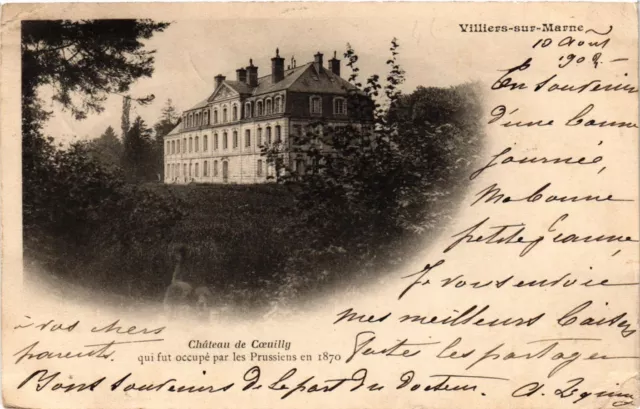 Villiers-sur-Marne
10 Août
1902
En souvenir
d'une bonne
journée,
Ma bonne
petite Jeanne,
Je vous envoie
mes meilleurs baisers,
faites les partager
à vos chers
parents.
Bons souvenirs de la part du docteur.
Château de Cœuilly
qui fut occupé par les Prussiens en 1870